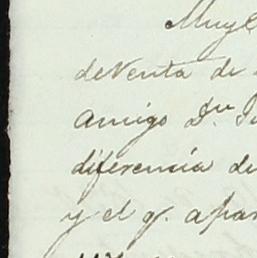 Muy
de Venta de
Amigo Dn.
diferencia de
y el q. apar